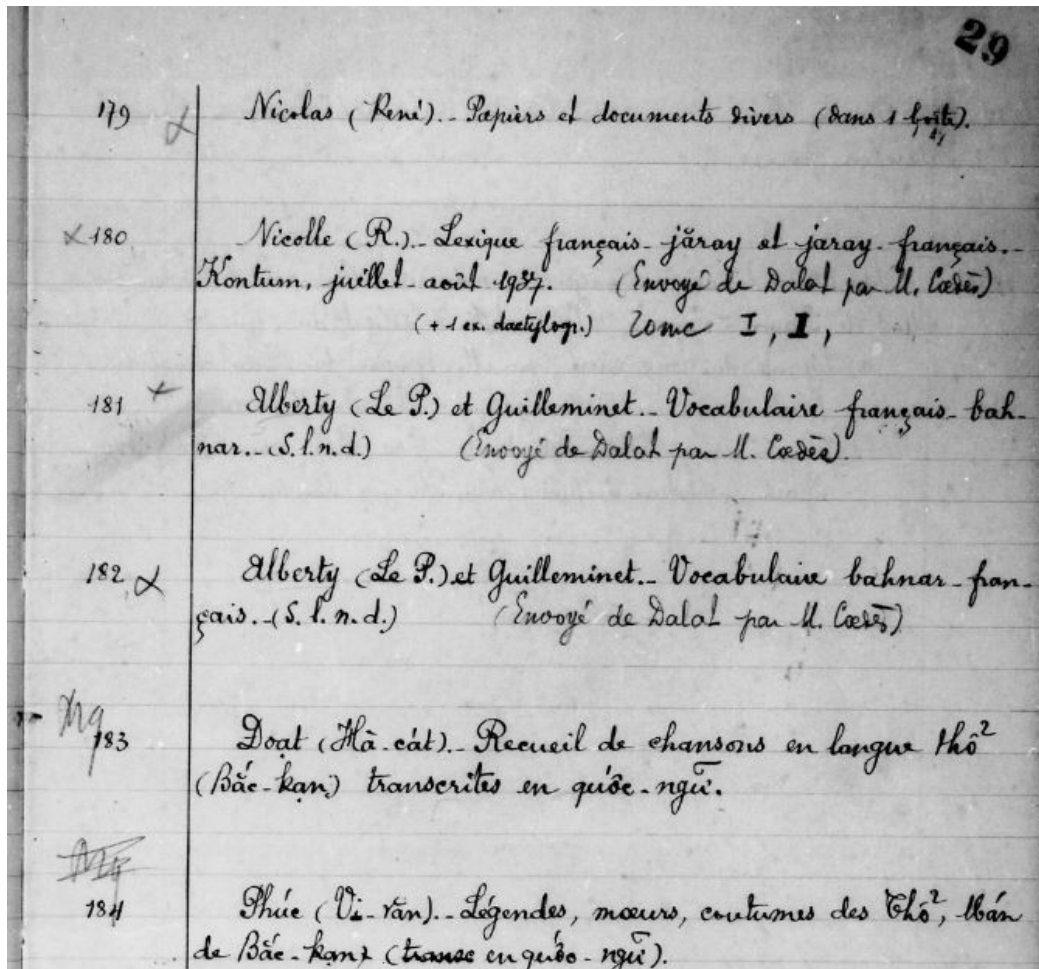 29
179 Nicolas (René). - Papiers et documents divers (dans 1 boîte).
180 Nicolle (R.). - Lexique français - jăray et jaray - français. -
Kontum, juillet - août 1937. (Envoyé de Dalat par M. Cœdès)
(+ 1 ex. dactylogr.) Tome I, II,
181 Alberty (Le P.) et Guilleminet. - Vocabulaire français - bah-
nar. - (S. l. n. d.) (Envoyé de Dalat par M. Cœdès).
182 Alberty (Le P.) et Guilleminet. - Vocabulaire bahnar - fran-
çais. - (S. l. n. d.) (Envoyé de Dalat par M. Cœdès)
183 Doạt (Hà - cát). - Recueil de chansons en langue thổ
(Bắc - kạn) transcrites en quốc - ngữ.
184 Phúc (Vi - văn). - Légendes, mœurs, coutumes des Thổ, Mán
de Bắc - kạn (transc en quốc - ngữ).